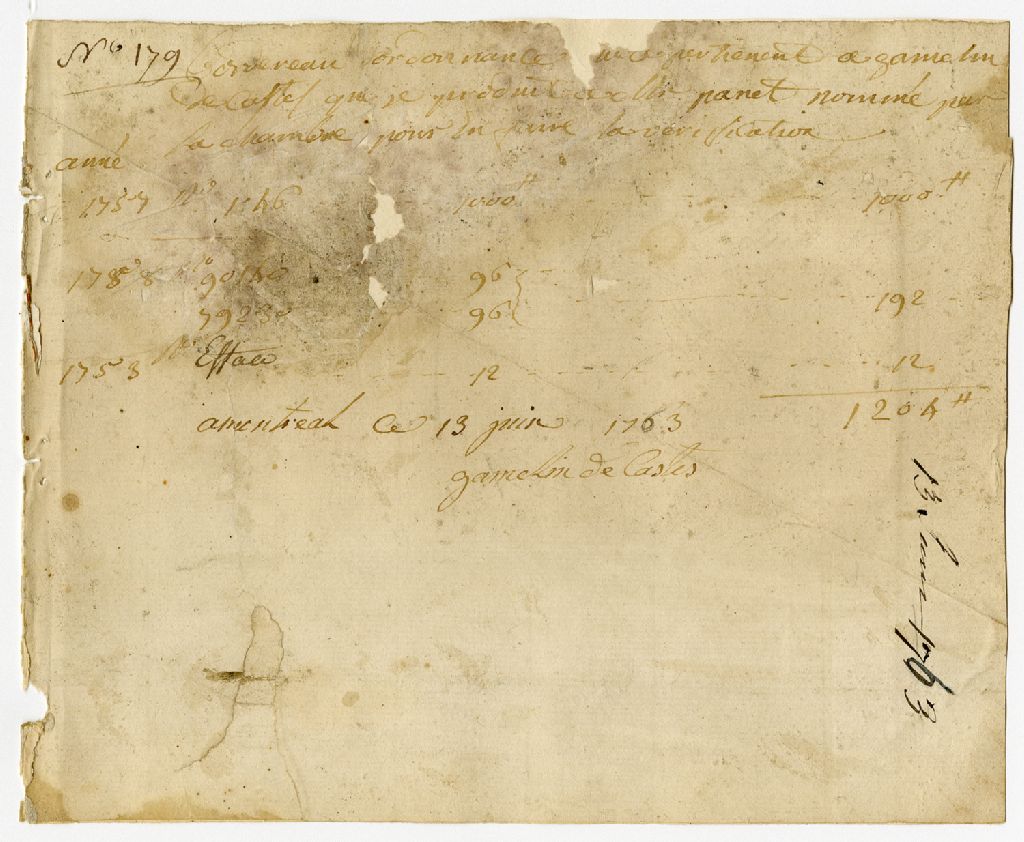 No 179 Bordereau ordonnance appartienent a gamelin
De Castes que je produit a Mr panet nommé par
la chambre pour En faire la verification
anné
1757 No 1146 1000# 1000#
1758 No 90140 96
7923 96 192
1758 No Effacé 12 12
1204#
a montreal Ce 13 juin 1763
gamelin de Castes
13 Juin 1763